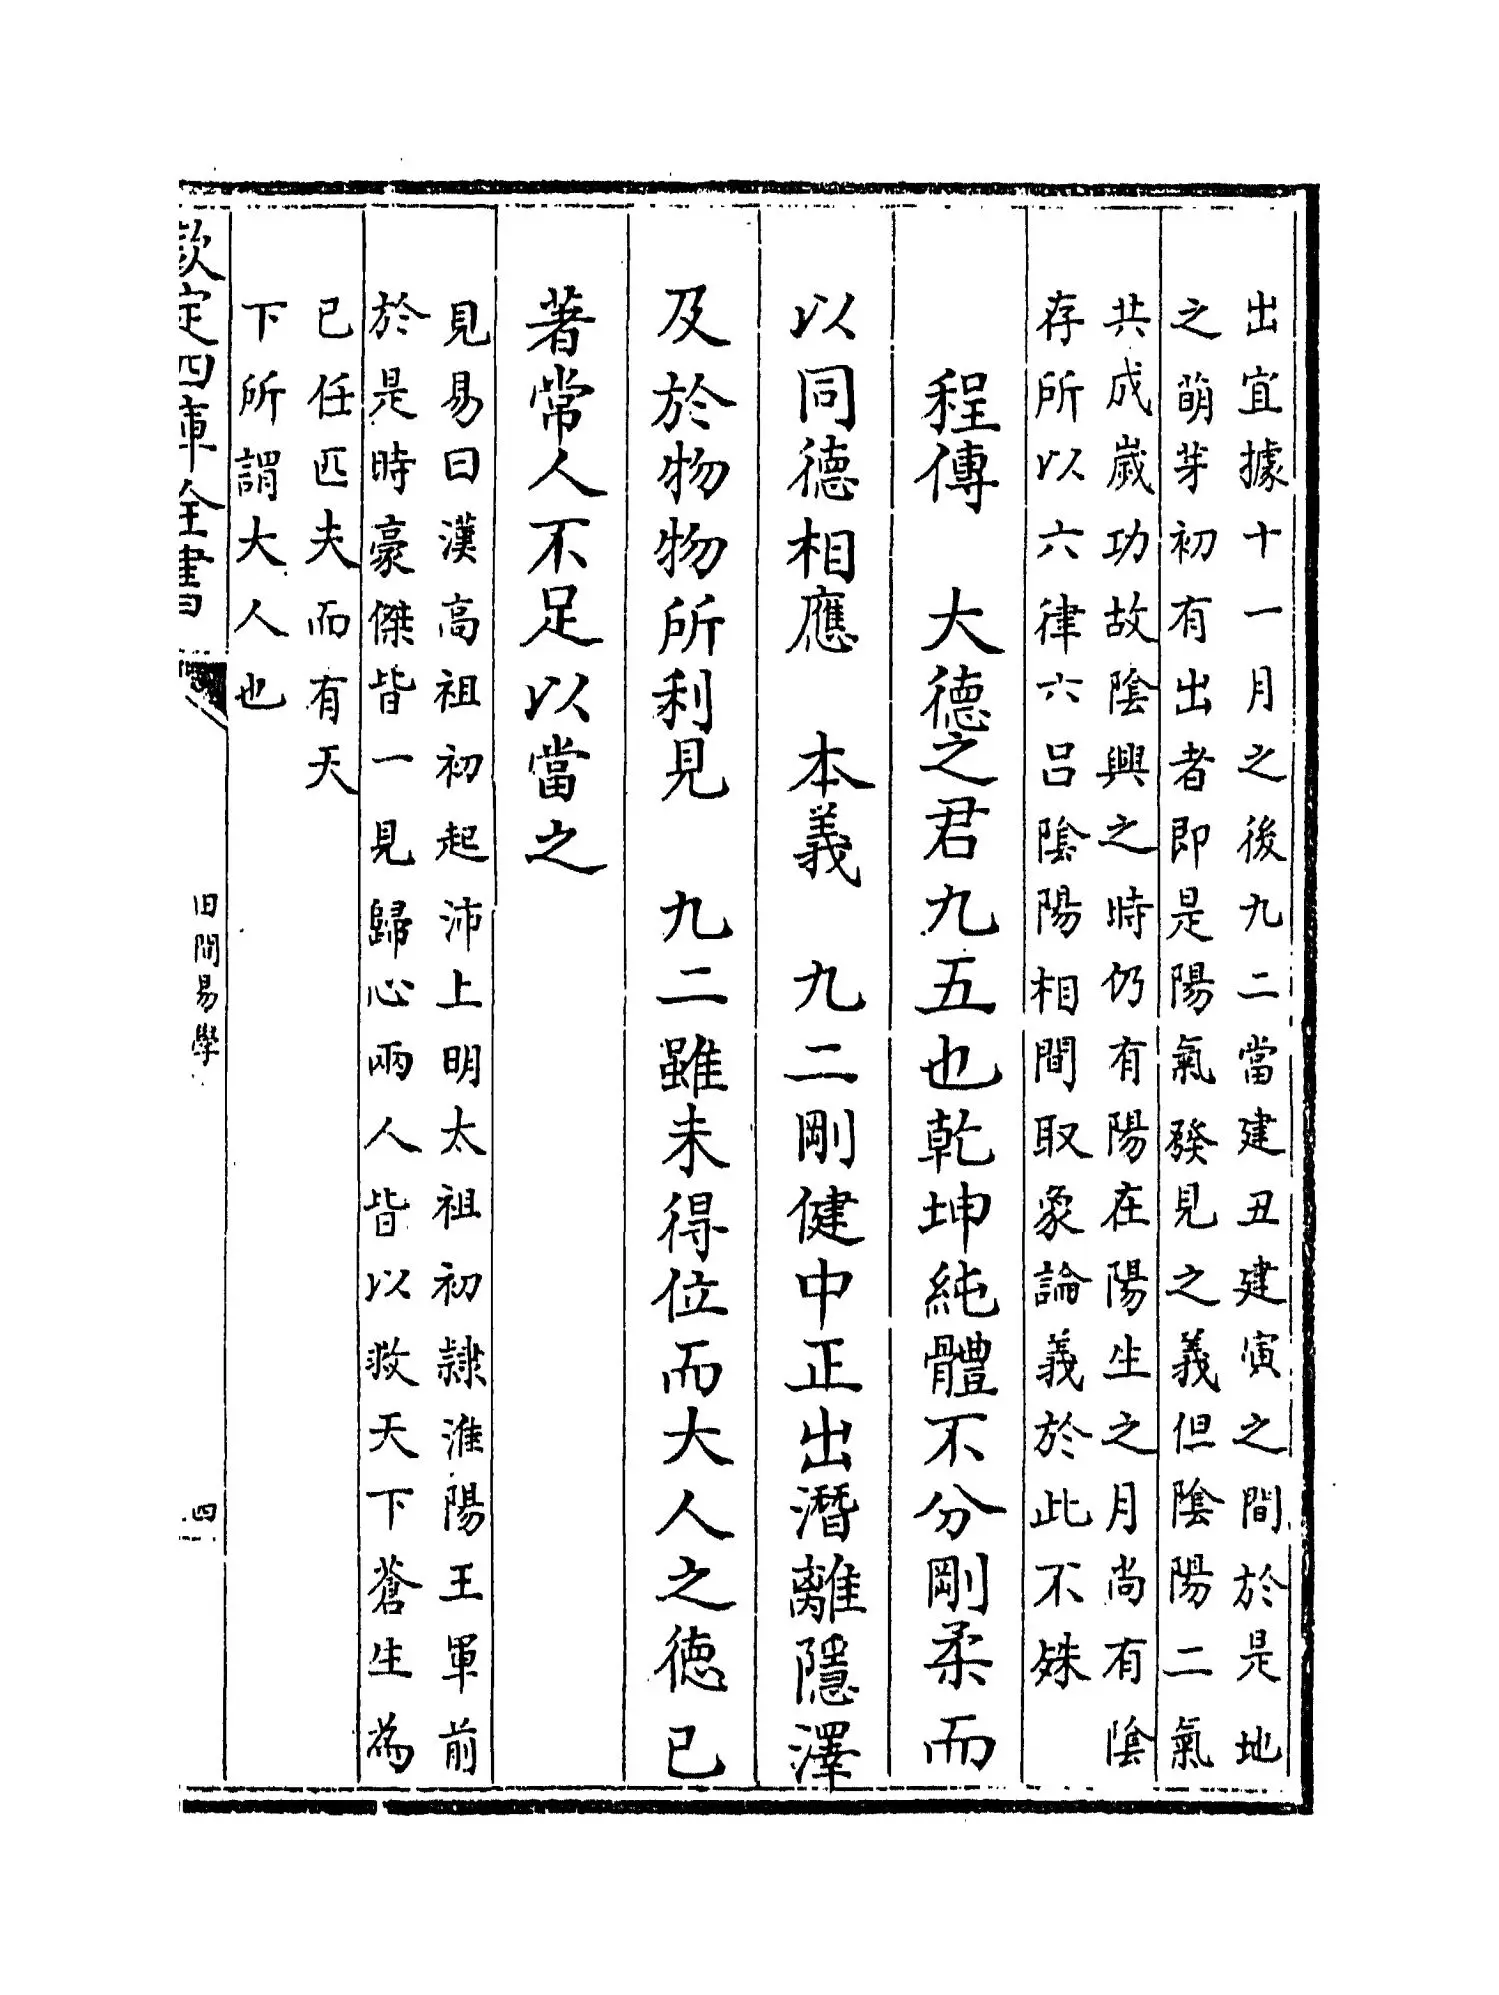 出宜據十一月之後九二當建丑建寅之間於是地
之萌芽初有出者即是陽氣發見之義但陰陽二氣
共成歲功故陰興之時仍有陽在陽生之月尚有陰
存所以六律六呂陰陽相間取象論義於此不殊
程傳 大德之君九五也乾坤純體不分剛柔而
以同德相應 本義 九二剛健中正出潛離隱澤
及於物物所利見 九二雖未得位而大人之德已
著常人不足以當之
見易曰漢高祖初起沛上明太祖初隷淮陽王軍前
於是時豪傑皆一見歸心兩人皆以救天下蒼生為
已任匹夫而有天
下所謂大人也
欽定四庫全書
田間易學
四